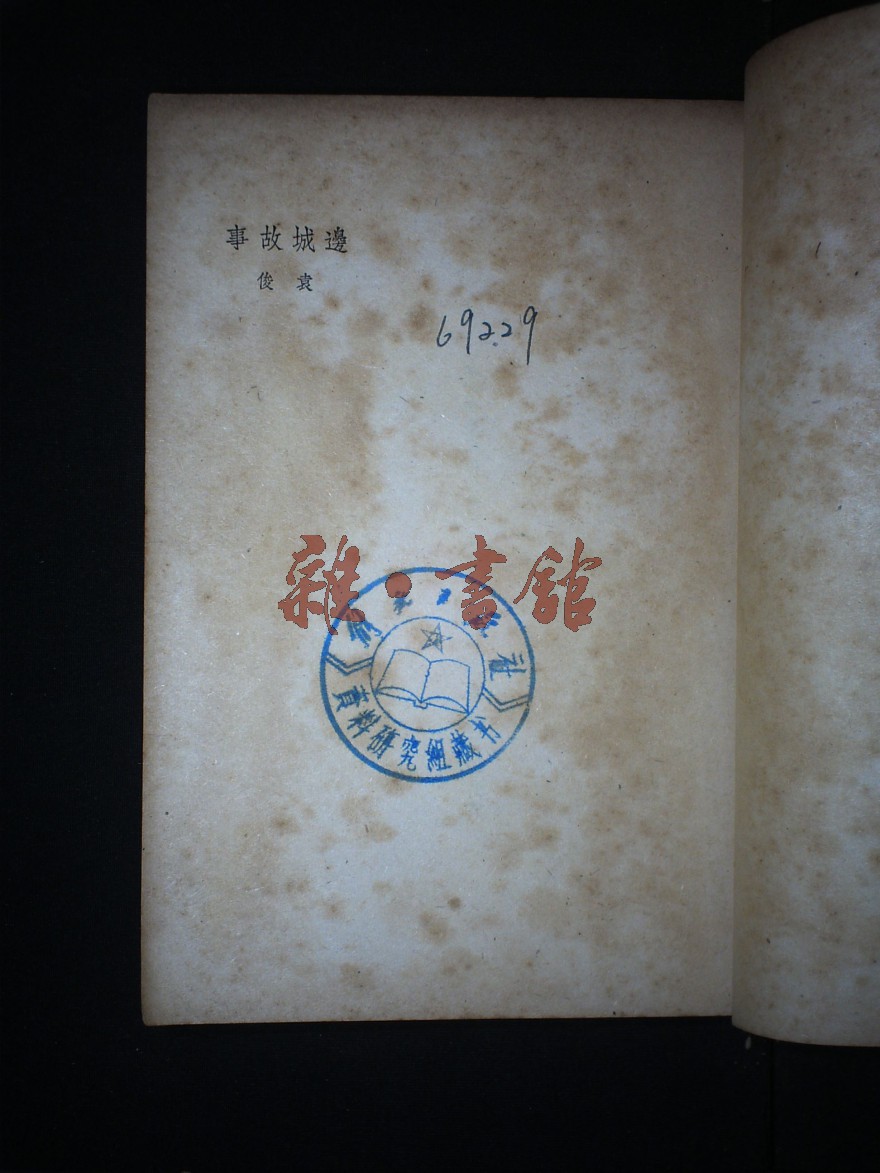 邊城故事
袁俊
692.29
雜·書館
社
資料研究組藏书